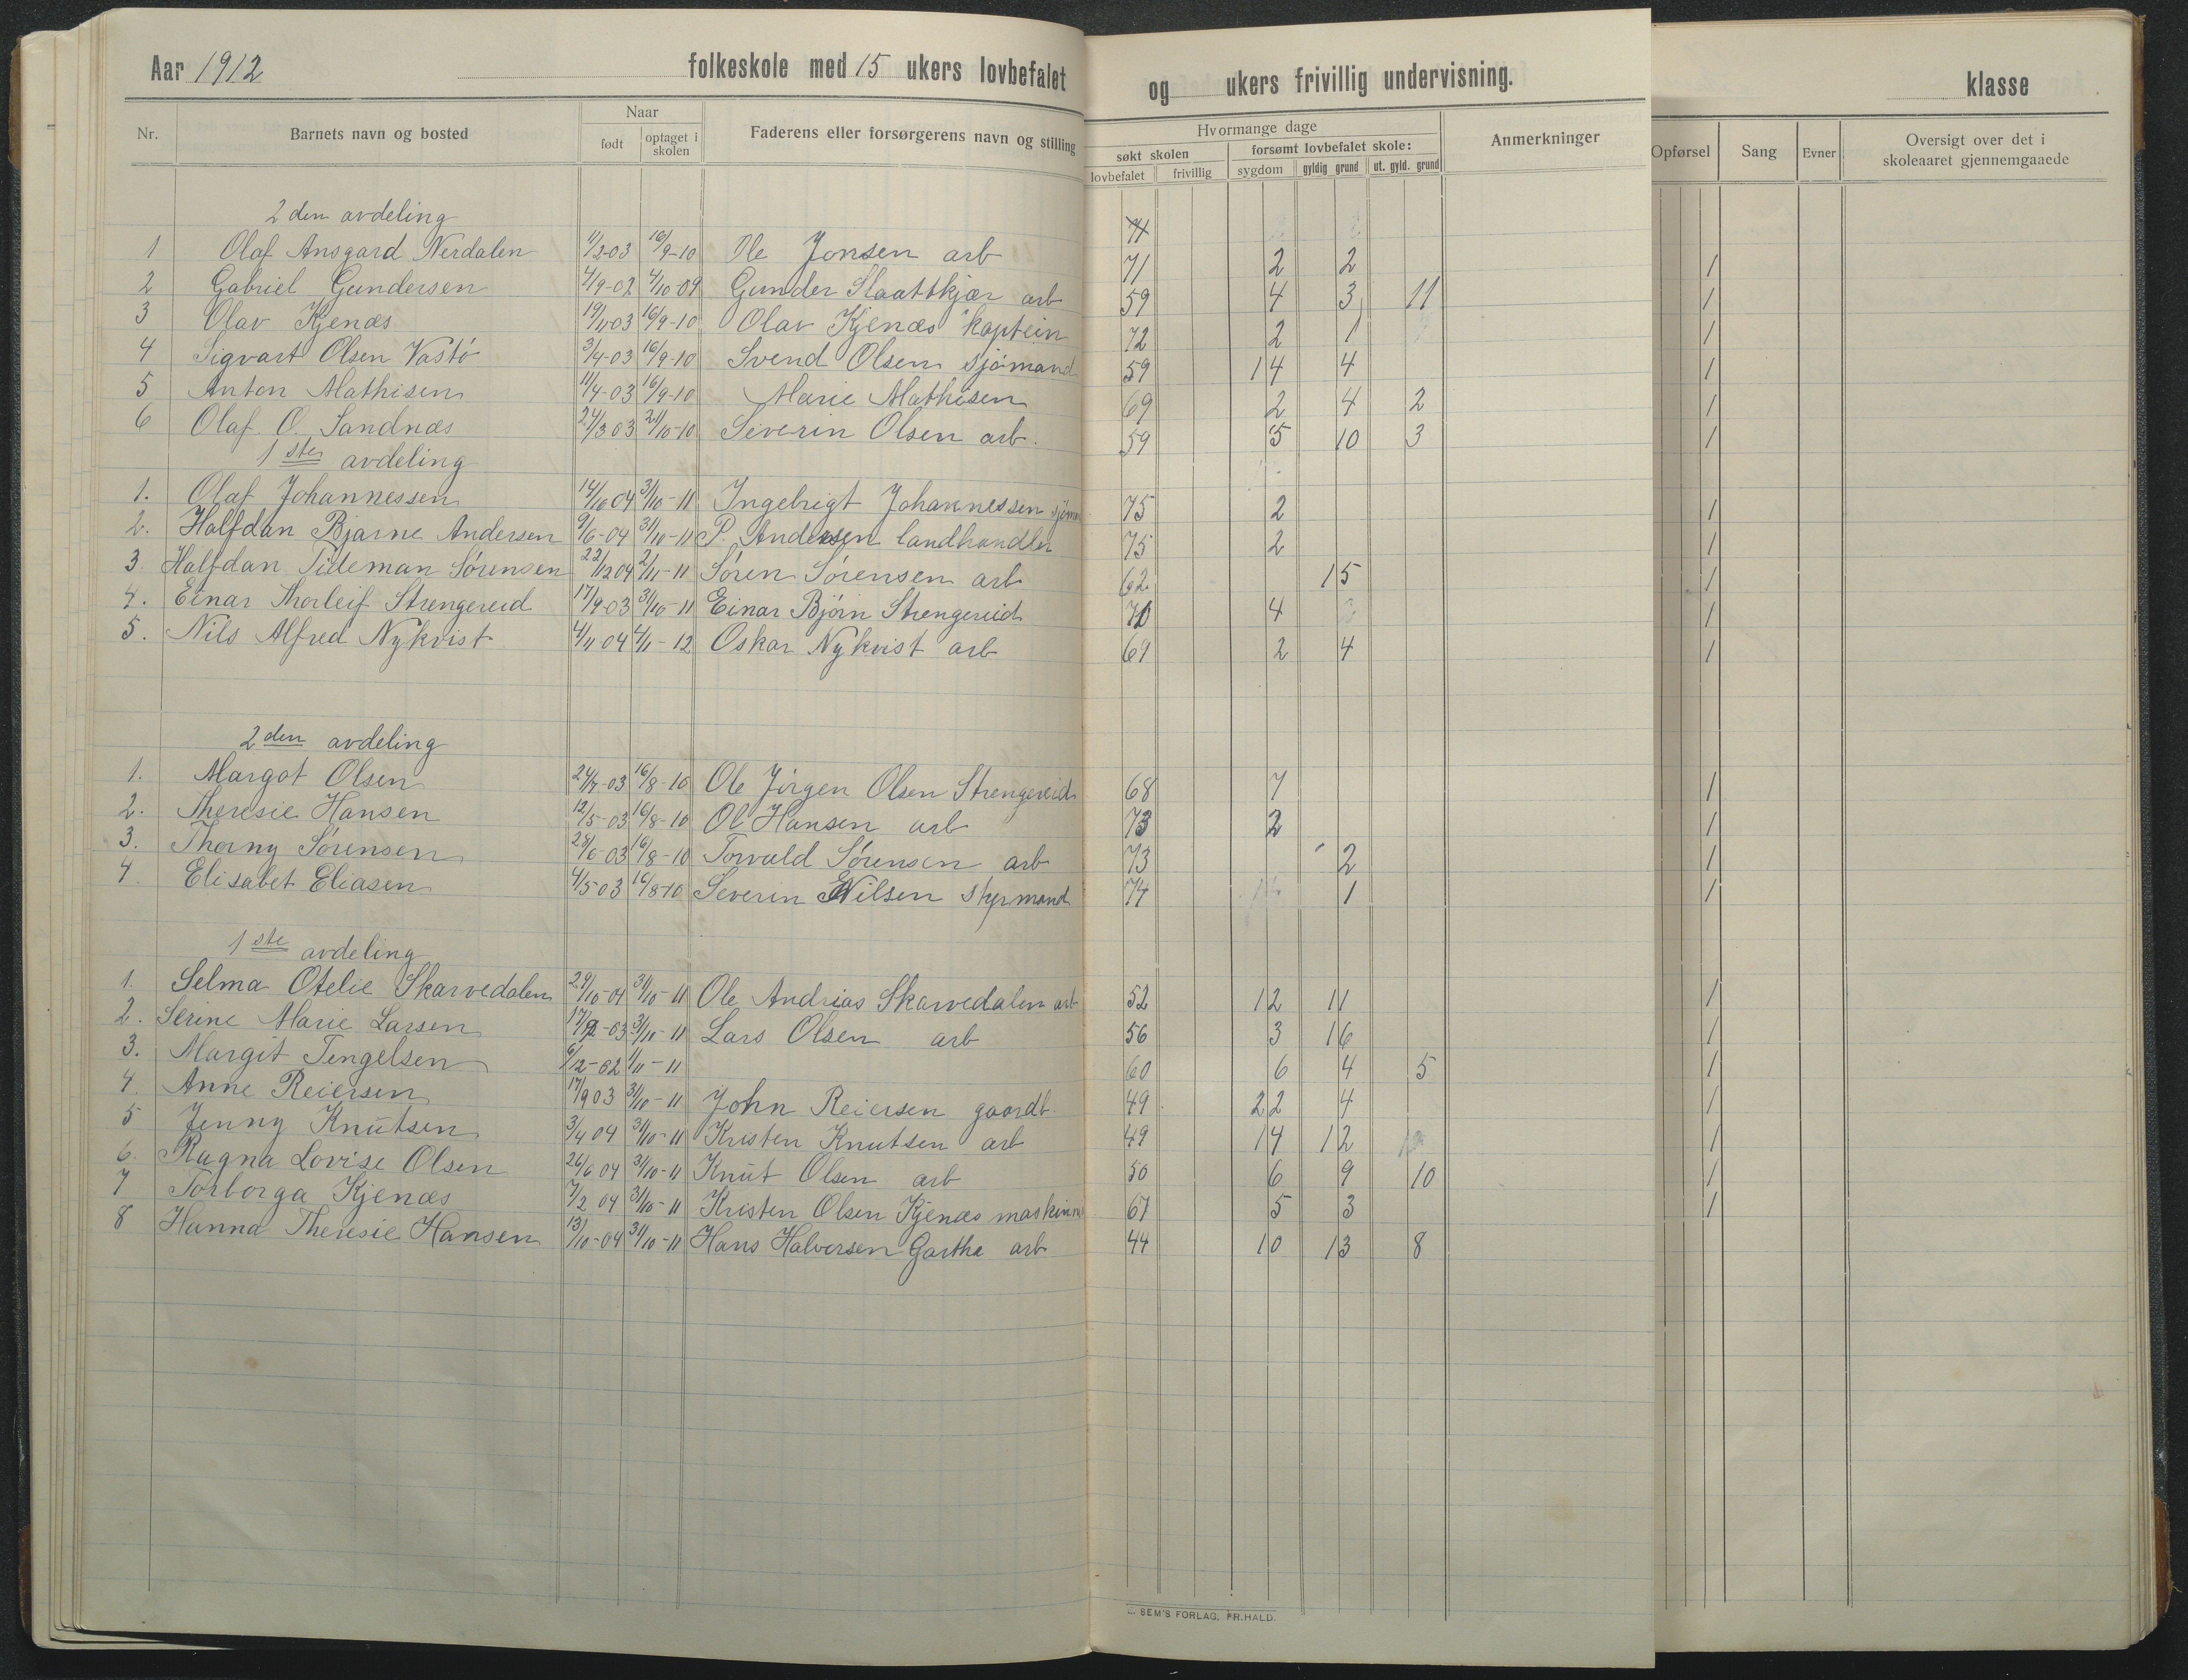 Aar 1912 folkeskole med 15 ukers lovbefalet og ukers frivillig undervisning. klasse
Nr. Barnets navn og bosted Naar født optaget i skolen Faderens eller forsørgerens navn og stilling Hvormange dage søkt skolen lovbefalet frivillig forsømt lovbefalet skole: sygdom gyldig grund ut. gyld. grund Anmerkninger Opførsel Sang Evner Oversigt over det i skoleaaret gjennemgaaede
2den avdeling
1 Olaf Ansgard Nerdalen 11/2-03 16/9-10 Ole Jonsen arb 71 2 2 1
2 Gabriel Gundersen 4/9-02 4/10-09 Gunder Slaattkjær arb 59 4 3 11 1
3 Olav Kjenæs 19/11-03 16/9-10 Olav Kjenæs kaptein 72 2 1 1
4 Sigvart Olsen Vastø 3/4-03 16/9-10 Svend Olsen sjømand 59 14 4 1
5 Anton Mathisen 11/4-03 16/9-10 Marie Mathisen 69 2 4 2 1
6 Olaf O. Sandnæs 24/3 03 21/10-10 Severin Olsen arb. 59 5 10 3 1
1ste avdeling
1. Olaf Johannessen 14/10 04 31/10-11 Ingebrigt Johannessen 75 2 1
2. Halfdan Bjarne Andersen 9/6-04 31/10-11 P. Andersen landhandler 75 2 1
3. Halfdan Tideman Sørensen 22/12 04 2/11-11 Søren Sørensen arb 62 15 1
4. Einar Thorleif Strengereid 17/9-03 31/10-11 Einar Bjørn Strengereid 70 4 1
5. Nils Alfred Nykvist 4/11 04 4/11-12 Oskar Nykvist arb 69 2 4 1
2den avdeling
1. Margot Olsen 24/7-03 16/8-10 Ole Jørgen Olsen Strengereid 68 7 1
2. Theresie Hansen 12/5-03 16/8-10 Ol Hansen arb 73 2 1
3. Thorny Sørensen 28/6-03 16/8-10 Torvald Sørensen arb 73 2 1
4. Elisabet Eliasen 4/5 03 16/8-10 Severin Nilsen styrmand 74 1 1
1ste avdeling
1. Selma Otelie Skarvedalen 29/10-04 31/10-11 Ole Andrias Skarvedalen arb 52 12 11 1
2. Serine Marie Larsen 31/10-11 Lars Olsen arb 56 3 16 1
3. Margit Tengelsen 6/12-02 1/11-11 60 6 4 5 1
4. Anne Reiersen 17/9 03 31/10-11 John Reiersen gaardb. 49 22 4 1
5 Jenny Knutsen 3/4 04 31/10-11 Kristen Knutsen arb 49 14 12 1
6. Ragna Lovise Olsen 26/6 04 31/10-11 Knut Olsen arb 50 6 9 10 1
7 Torborga Kjenæs 7/2 04 31/10-11 Kristen Olsen Kjenæs maskinm 67 5 3 1
8 Hanna Theresie Hansen 13/10-04 31/10-11 Hans Halvorsen Gartha arb 44 10 13 8
SEM'S FORLAG, FR.HALD.